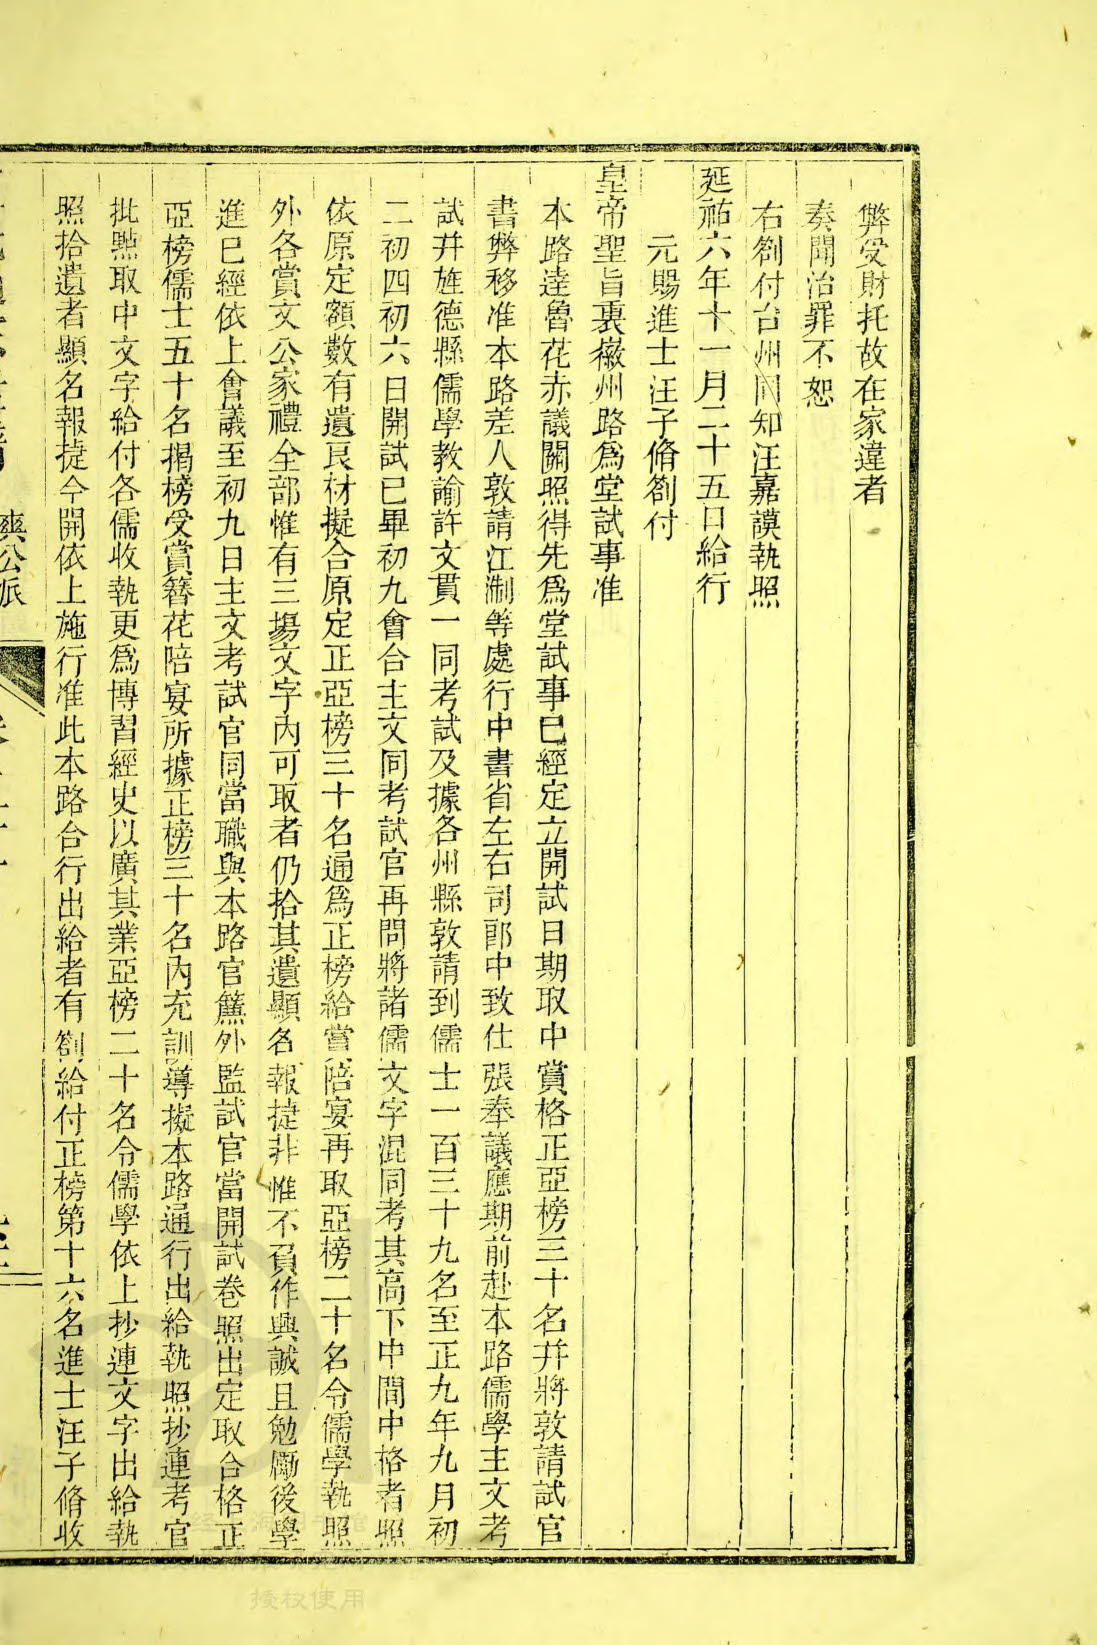 弊受財托故在家違者
奏聞治罪不恕
右劄付台州同知汪嘉謨執照
延祐六年十一月二十五口給行
元賜進士汪子脩劄付
皇帝聖旨裏徽州路爲堂試事准
本路達魯花赤議關照得先爲堂試事已經定立開試日期取中賞格正亞榜三十名并將敦請試官
書弊移准本路差人敦請江淛等處行中書省左右司郎中致仕張奉議應期前赴本路儒學主文考
試并旌德縣儒學教諭許文貫一同考試及據各州縣敦請到儒士一百三十九名至正九年九月初
二初四初六日開試已畢初九會合主文同考試官再問將諸儒文字混同考其高下中間中格者照
依原定額數有遺艮材擬合原定正亞榜三十名通爲正榜給嘗陪宴再取亞榜二十名令儒學執照
外各賞文公家禮全部惟有三塲文字內可取者仍拾其遺顯名報捷非惟不負作興誠且勉勵後學
進巳經依上會議至初九日主文考試官同當職與本路官簾外監試官當開試卷照出定取合格正
亞榜儒士五十名揭榜受賞簪花陪宴所據正榜三十名內充訓導擬本路通行出給執照抄連考官
批㸃取中文字給付各儒收執更爲博習經史以廣其業亞榜二十名令儒學依上抄連文字出給執
照拾遺者顯名報捷今開依上施行准此本路合行出給者有劄給付正榜第十六名進士汪子脩收
爽公派
经授权使用